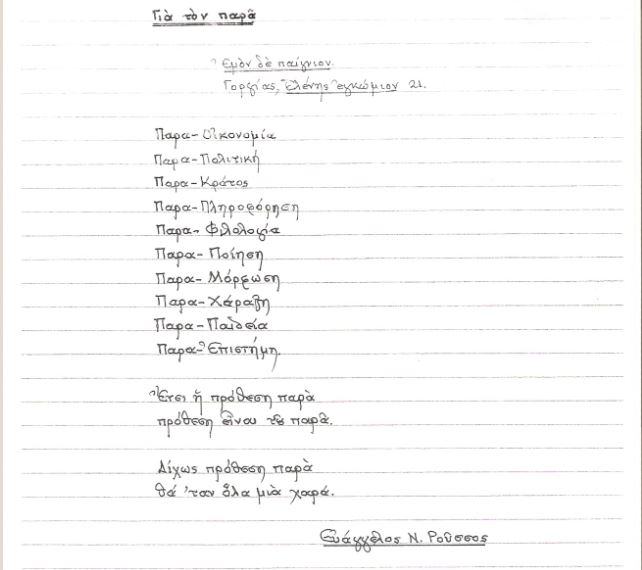 Γιὰ τὸν παρᾶ
Ἐμὸν δὲ παίγνιον.
Γοργίας, Ἑλένης ἐγκώμιον 21.
Παρα-Οἰκονομία
Παρα-Πολιτική
Παρα-Κράτος
Παρα-Πληροφόρηση
Παρα-Φιλολογία
Παρα-Ποίηση
Παρα-Μόρφωση
Παρα-Χάραξη
Παρα-Παιδεία
Παρα-Ἐπιστήμη.
Ἔτσι ἡ πρόθεση παρὰ
πρόθεση εἶναι τοῦ παρᾶ.
Δίχως πρόθεση παρὰ
θά 'ταν ὅλα μιὰ χαρά.
Εὐάγγελος Ν. Ροῦσσος